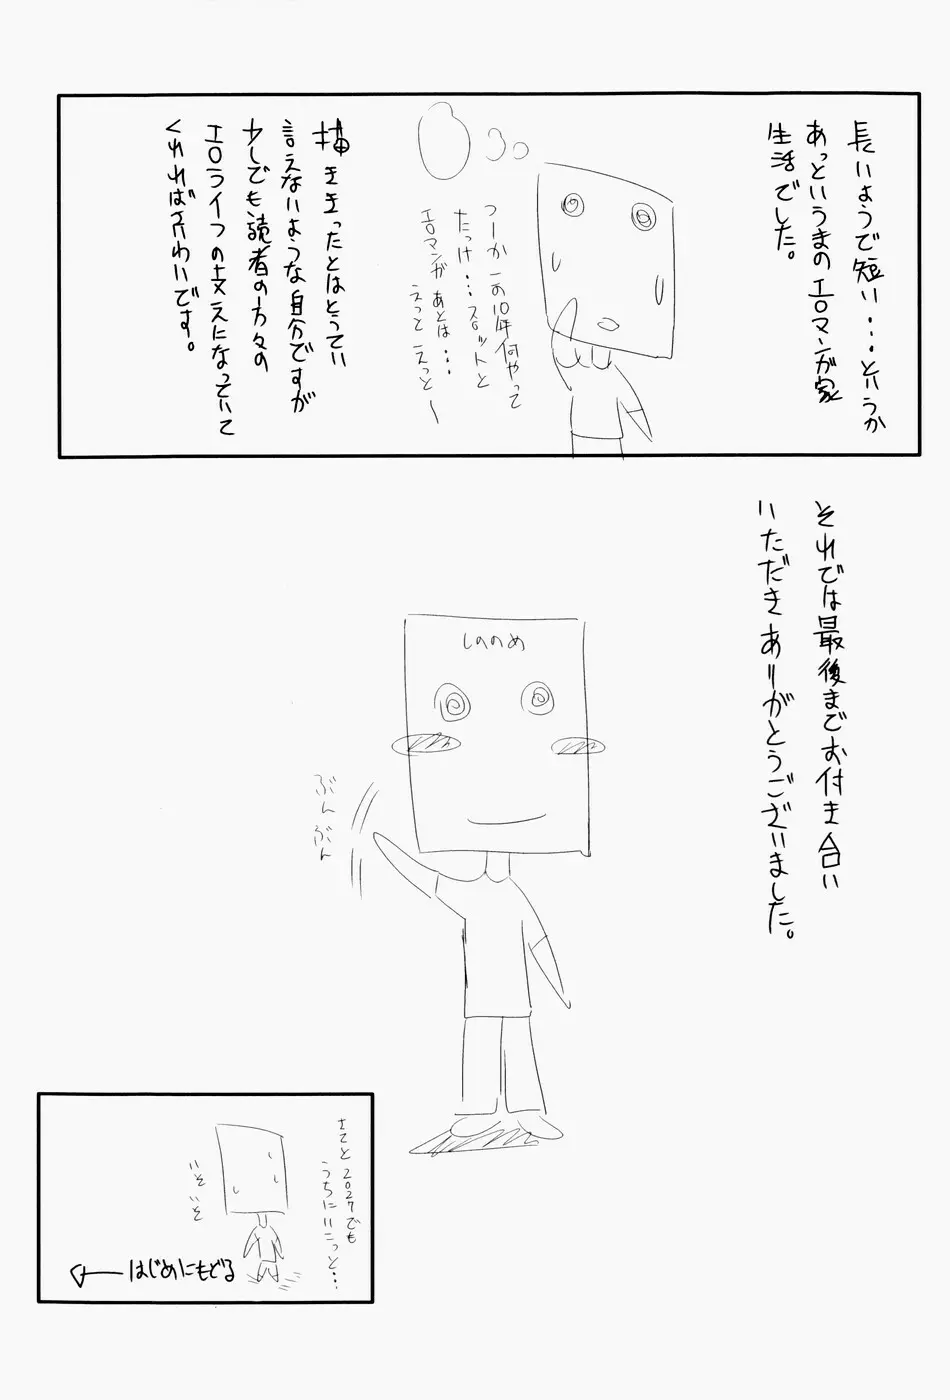 長いようで短い・・・というか
あっというまのエロマンガ家
生活でした。
つーかこの10年何やって
たっけ・・・スロットと
エロマンガあとは・・・
えっとえっと〜
描ききったとはとうてい
言えないような自分ですが
少しでも読者の方々の
エロライフの支えになっていて
くれればさいわいです。
それでは最後までお付き合い
いただきありがとうございました。
しののめ
ぶんぶん
さてと2027でも
うちにいこっと・・・
いそいそ
はじめにもどる